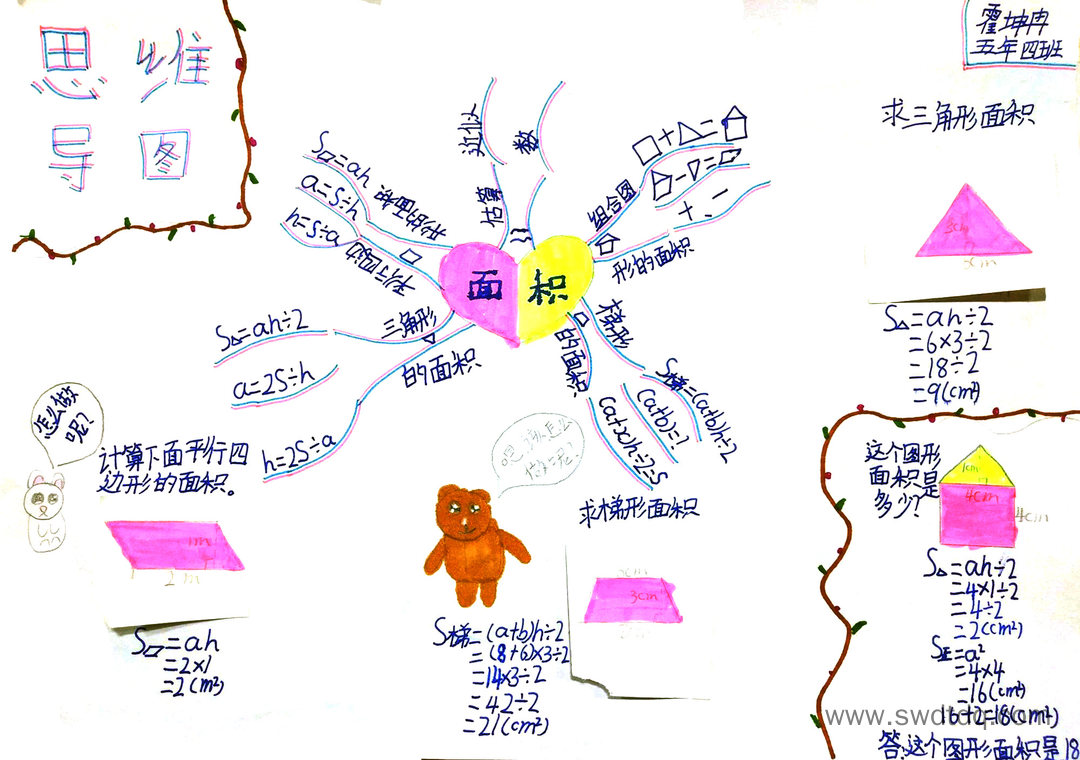 思维
导图
霍坤冉
五年四班
面积
近似
数
估算
S▱=ah
a=S÷h
h=S÷a
平行四边
形的面积
S△=ah÷2
a=2S÷h
h=2S÷a
三角形
的面积
组合图
形的面积
□+△=
-▽=▱
+、-
梯形
的面积
S梯=(a+b)h÷2
(a+b)=?
(a+x)h÷2=S
求三角形面积
3cm
S△=ah÷2
=6×3÷2
=18÷2
=9(cm²)
怎么做
呢?
计算下面平行四
边形的面积。
1m
2m
S▱=ah
=2×1
=2(m²)
求梯形面积
3cm
S梯=(a+b)h÷2
=(8+6)×3÷2
=14×3÷2
=42÷2
=21(cm²)
这个图形
面积是
多少?
1cm
4cm
4cm
S△=ah÷2
=4×1÷2
=4÷2
=2(cm²)
S正=a²
=4×4
=16(cm²)
16+2=18(cm²)
答:这个图形面积是18